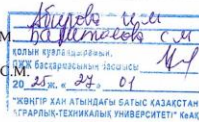 Абирова И.М
М. Баритасова С М
қолын куәландырамын.
ОЖЖ басқармасының бастығы
С.М.
20 25 ж. « 27 » 01
"ЖӘҢГІР ХАН АТЫНДАҒЫ БАТЫС ҚАЗАҚСТАН
АГРАРЛЫҚ-ТЕХНИКАЛЫҚ УНИВЕРСИТЕТІ" КеАҚ